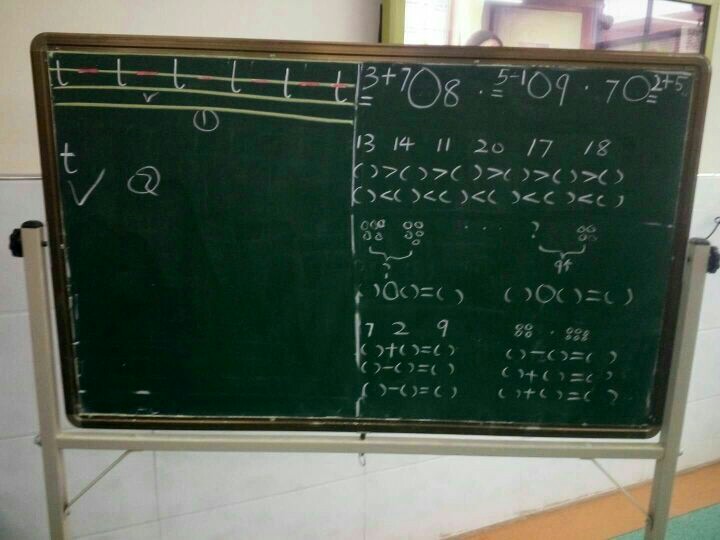 t - t - t - t - t - t
①
t
②
3+7○8 · 5-1○9 · 7○2+5
13 14 11 20 17 18
( )>( )>( )>( )>( )>( )
( )<( )<( )<( )<( )<( )
?
?
( )○( )=( ) ( )○( )=( )
7 2 9
( )+( )=( ) ( )-( )=( )
( )-( )=( ) ( )+( )=( )
( )-( )=( ) ( )+( )=( )